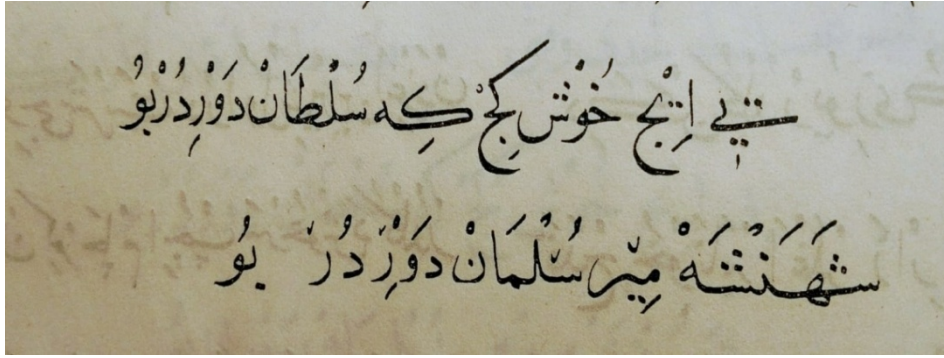 يي اِيچ خُوْش كِچْ كِه سُلْطَانْ دَوْرِدُرْ بُو
شَهَنْشَهْ مِيرْ سُلْمَانْ دَوْرِدُرْ بُو